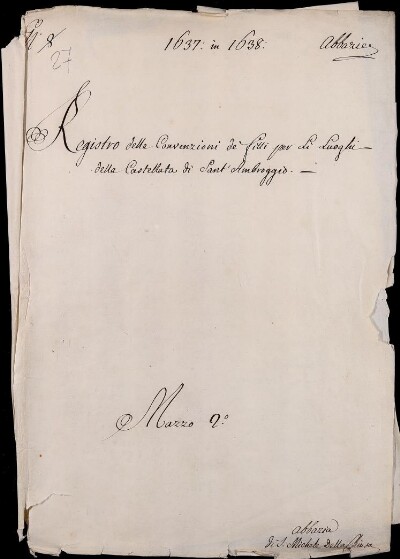 N.º 8
27
1637: in 1638:
Abbazie
Registro della Convenzioni de' fitti per Li Luoghi
della Castellata di Sant'Ambroggio.
Mazzo 2º
Abbazia
di S. Michele Della Chiusa